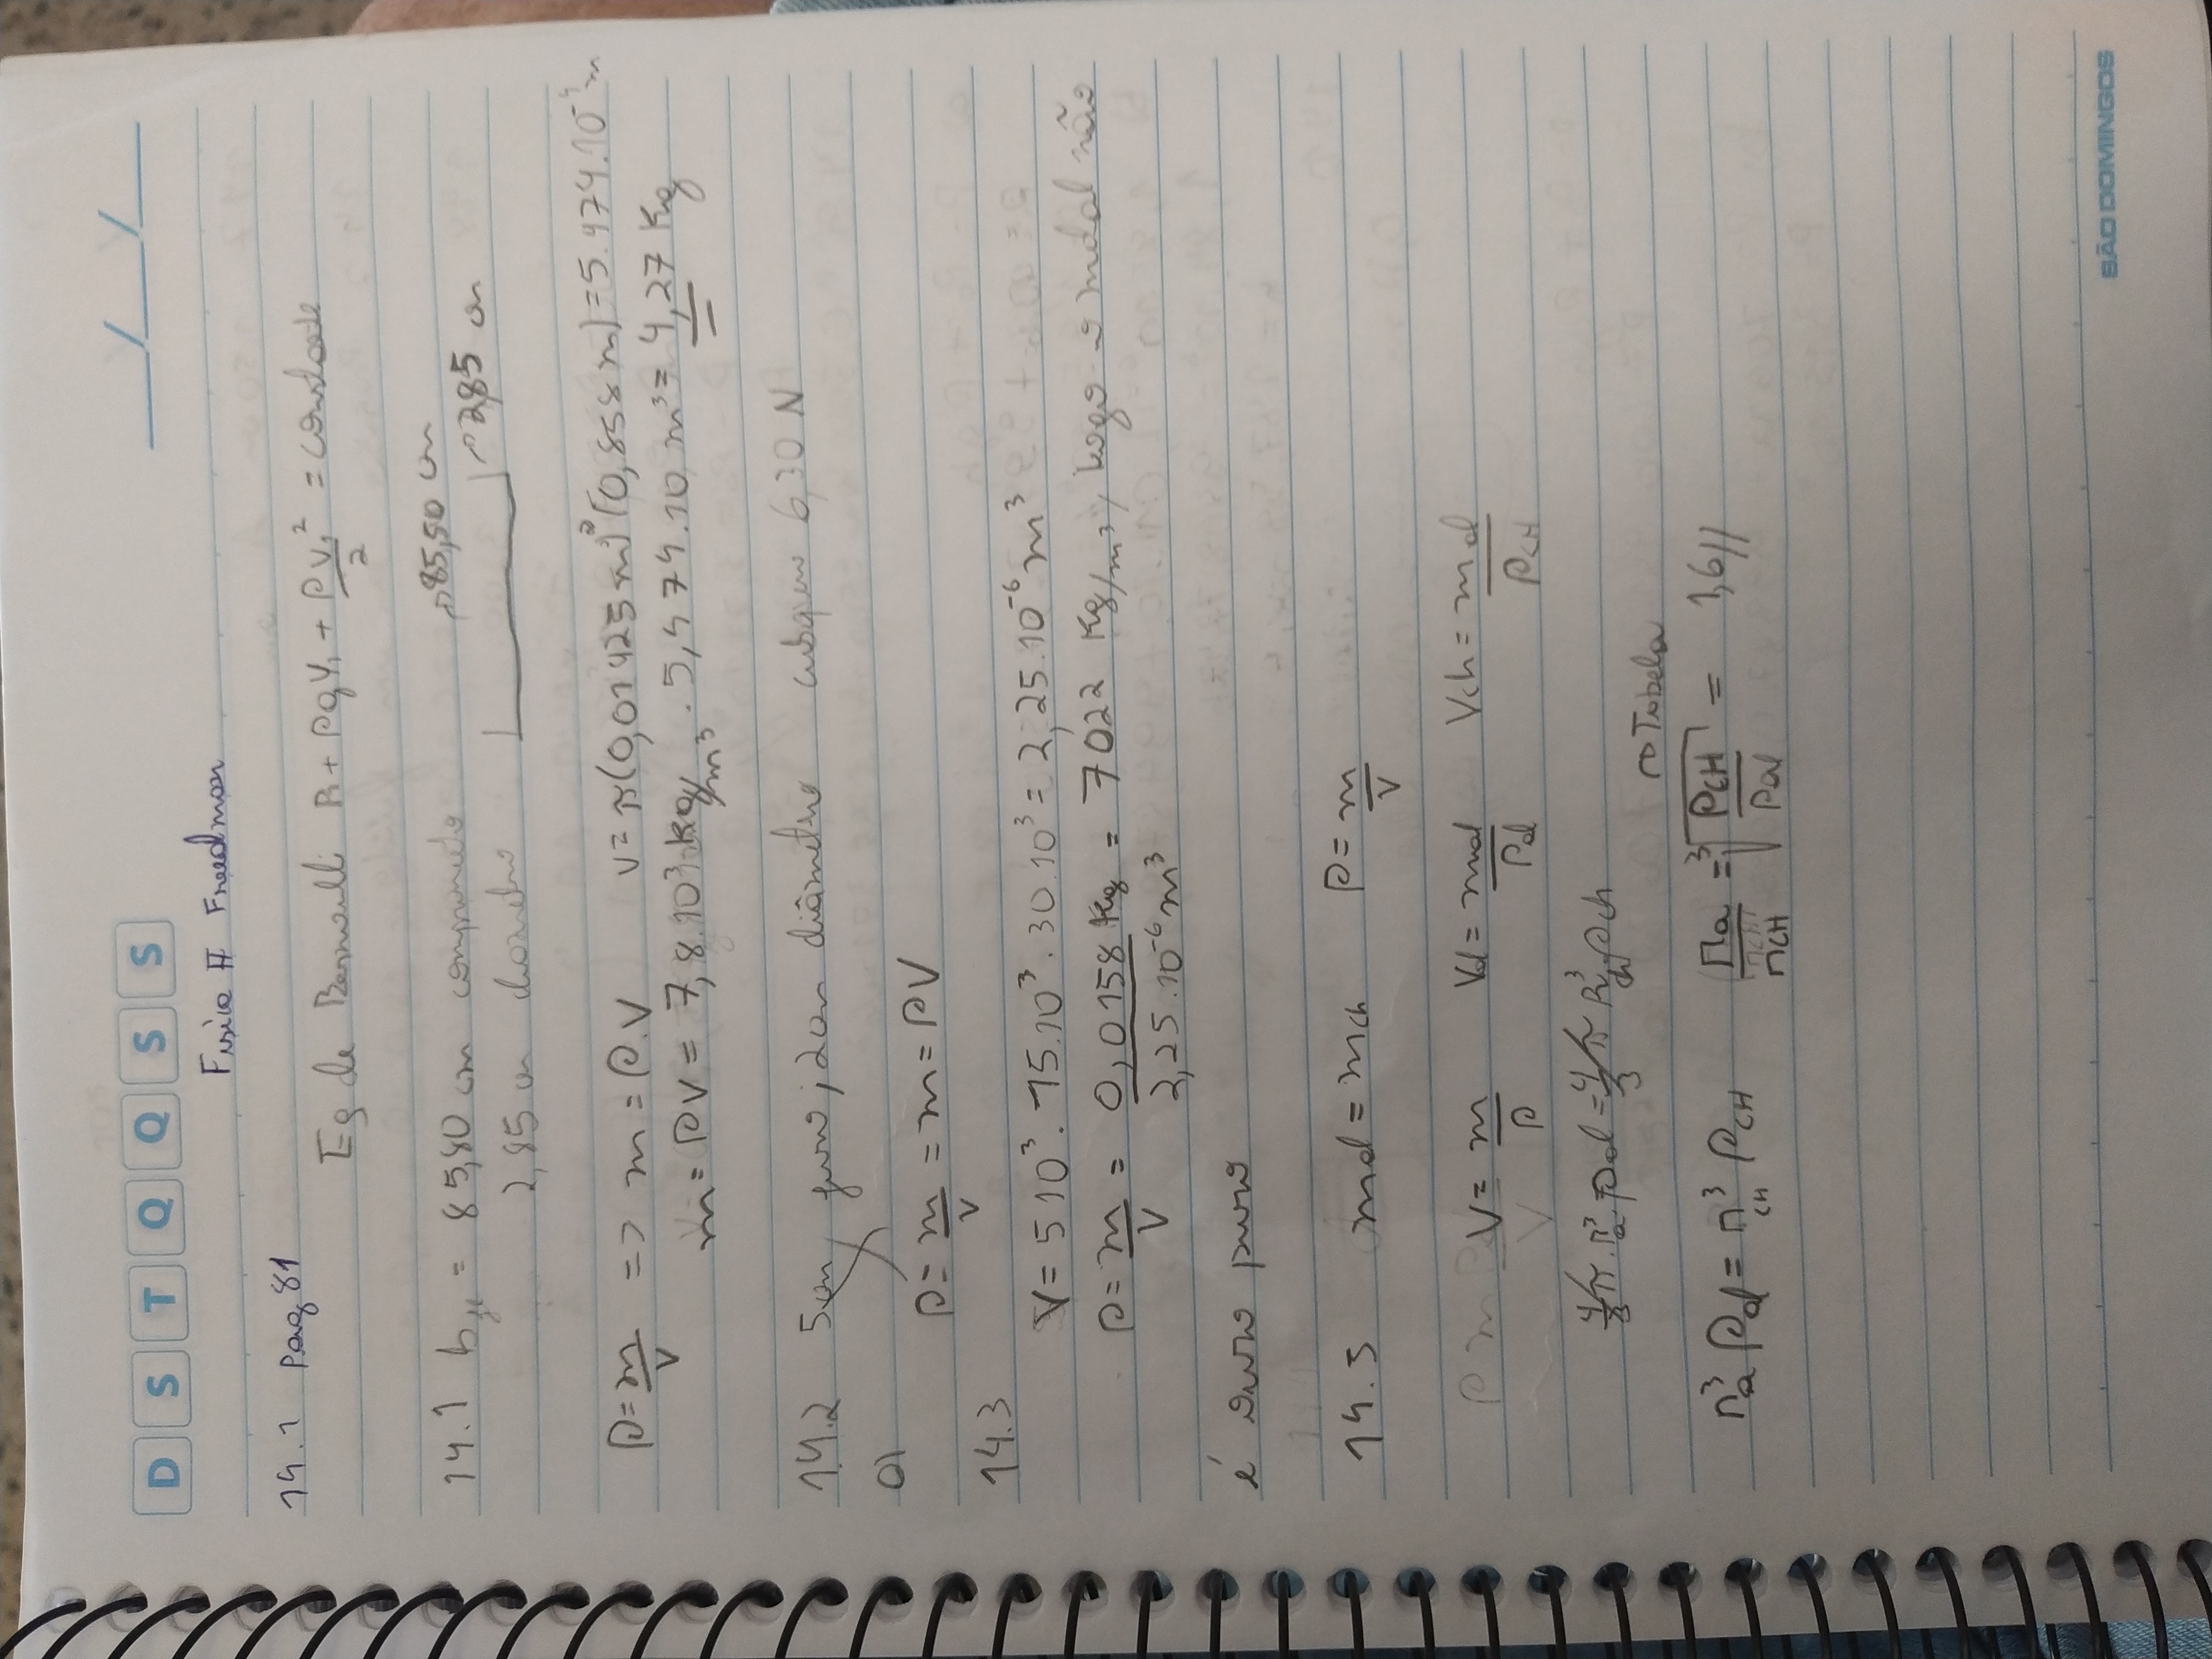 D S T Q Q S S __/__/__
Física II Freedman
14.1 Pag, 81
Eq de Bernoulli P₁ + ρgY₁ + ρV₁²/2 = constante
14.1 h = 85,80 cm comprimento → 85,50 cm
2,85 cm diametro → 2,85 cm
ρ = m/V => m = ρ.V V = π(0,01425m)²(0,858m) = 5.474.10⁻⁴ m
m = ρV = 7,8.10³ kg/m³ . 5,474.10, m³ = 4,27 Kg
14.2 5cm, furo, 2cm diâmetro 6,30 N
a) ρ = m/V = m = ρV
14.3
V = 5 10³ . 15.10³ . 30.10³ = 2,25.10⁻⁶ m³
ρ = m/V = 0,0158 Kg / 2,25.10⁻⁶ m³ = 7022 Kg/m³, logo o metal não
é ouro puro
14.5 mal = mch ρ = m/V
V = m/ρ Val = mal/ρal Vch = mal/ρcH
4/3 π.r³a.ρal = 4/3 π R³ch ρch
r³a ρal = r³cH ρcH ra/rcH = ³√ρcH/ρal = 1,6//
→ Tabela
SÃO DOMINGOS